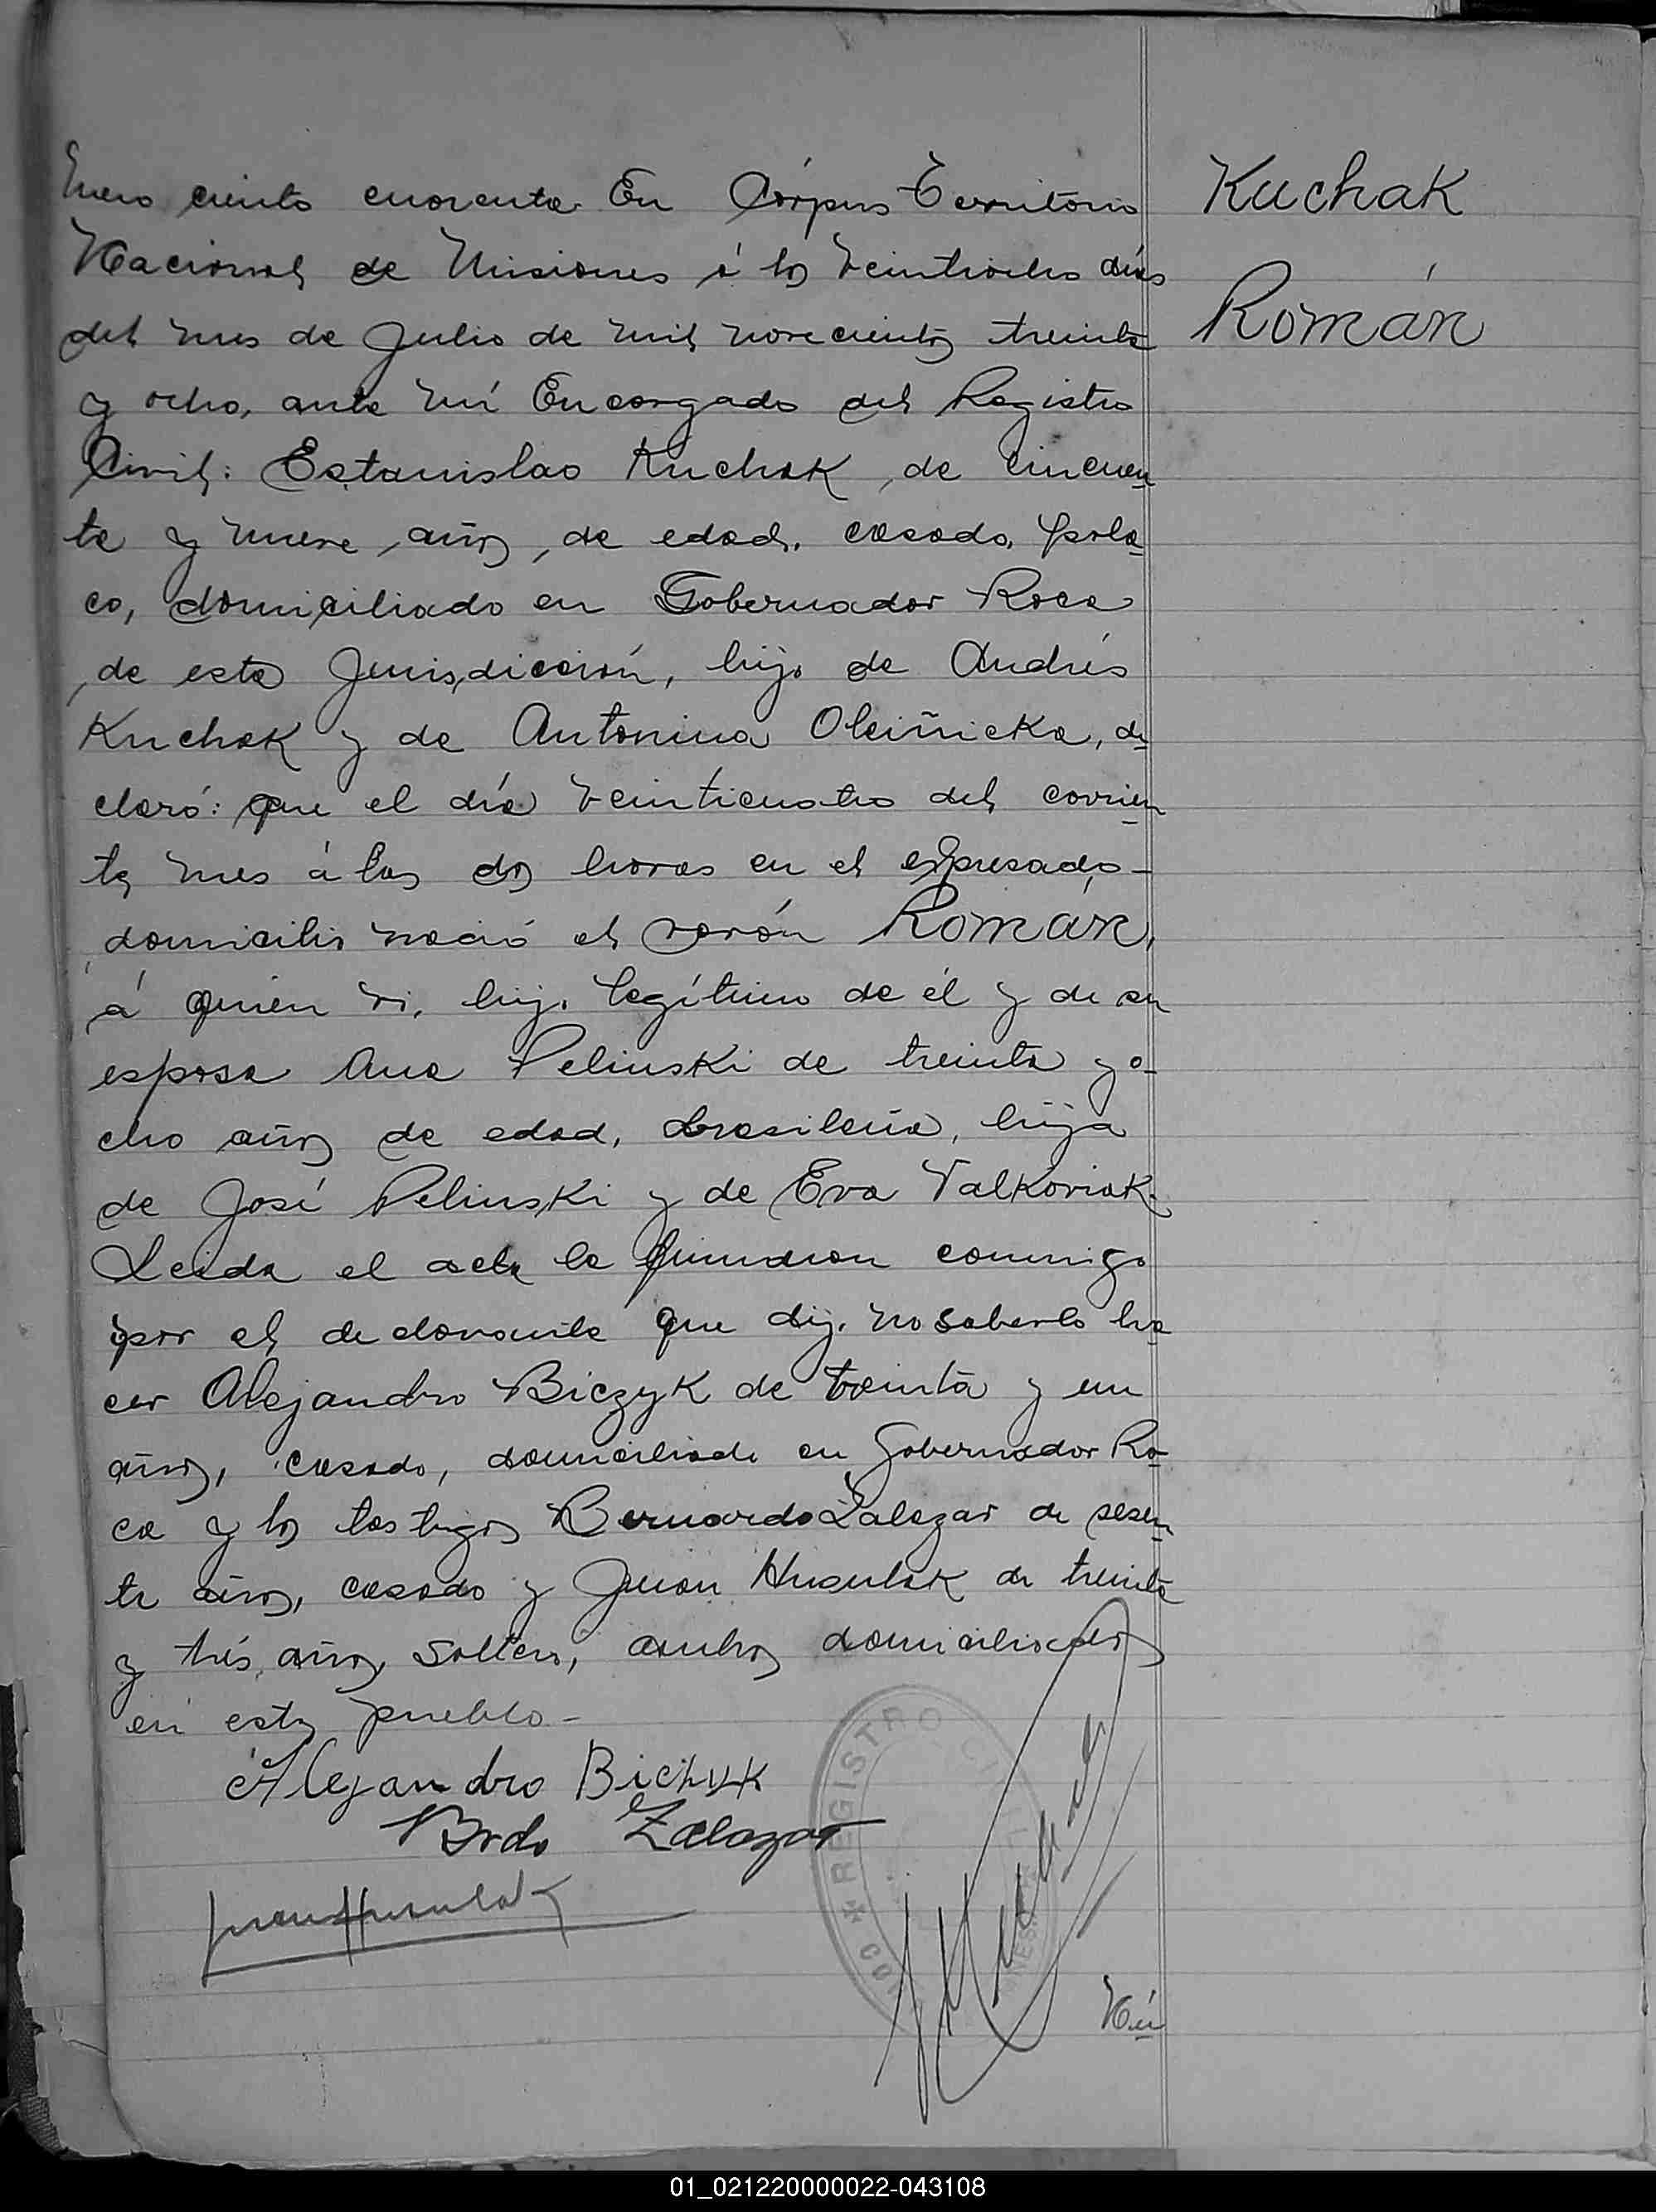 mero ciento cuarenta En Córpus Territorio
Nacional de Misiones á los veintiocho días
del mes de Julio de mil novecientos treinta
y ocho, ante mí Encargado del Registro
Civil: Estanislao Kuchak, de cincuen
ta y nueve años, de edad, casado, pola
co, domiciliado en Gobernador Roca
de esta Jurisdicción, hijo de Andrés
Kuchak y de Antonina Oleiñicka, de
claró: que el día veinticuatro del corrien
te mes á las dos horas en el expresado
domicilio nació el varón Román,
á quien vi, hijo legítimo de él y de su
esposa Ana Pelinski de treinta y o
cho años de edad, brasileña, hija
de José Pelinski y de Eva Valkoviak.
Leida el acta la firmaron conmigo
por el declarante que dijo no saberlo ha
cer Alejandro Biczyk de treinta y un
años, casado, domiciliado en Gobernador Ro
ca y los testigos Bernardo Zalazar de sesen
ta años, casado y Juan Husulak de treinta
y trés años, soltero, ambos domiciliados
en este pueblo-
Alejandro Bichyk
Brdo Zalazar
Juan Husulak
REGISTRO CI
Nú
Kuchak
Román
01_021220000022-043108